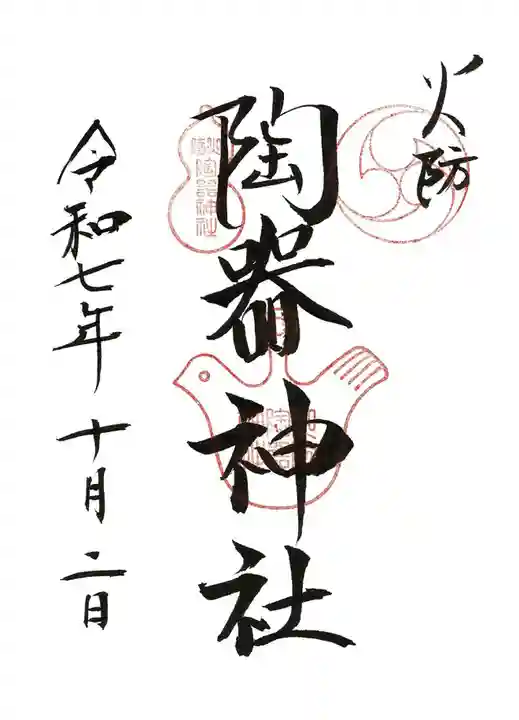 火防
陶器神社
令和七年十月二日
陶器神社